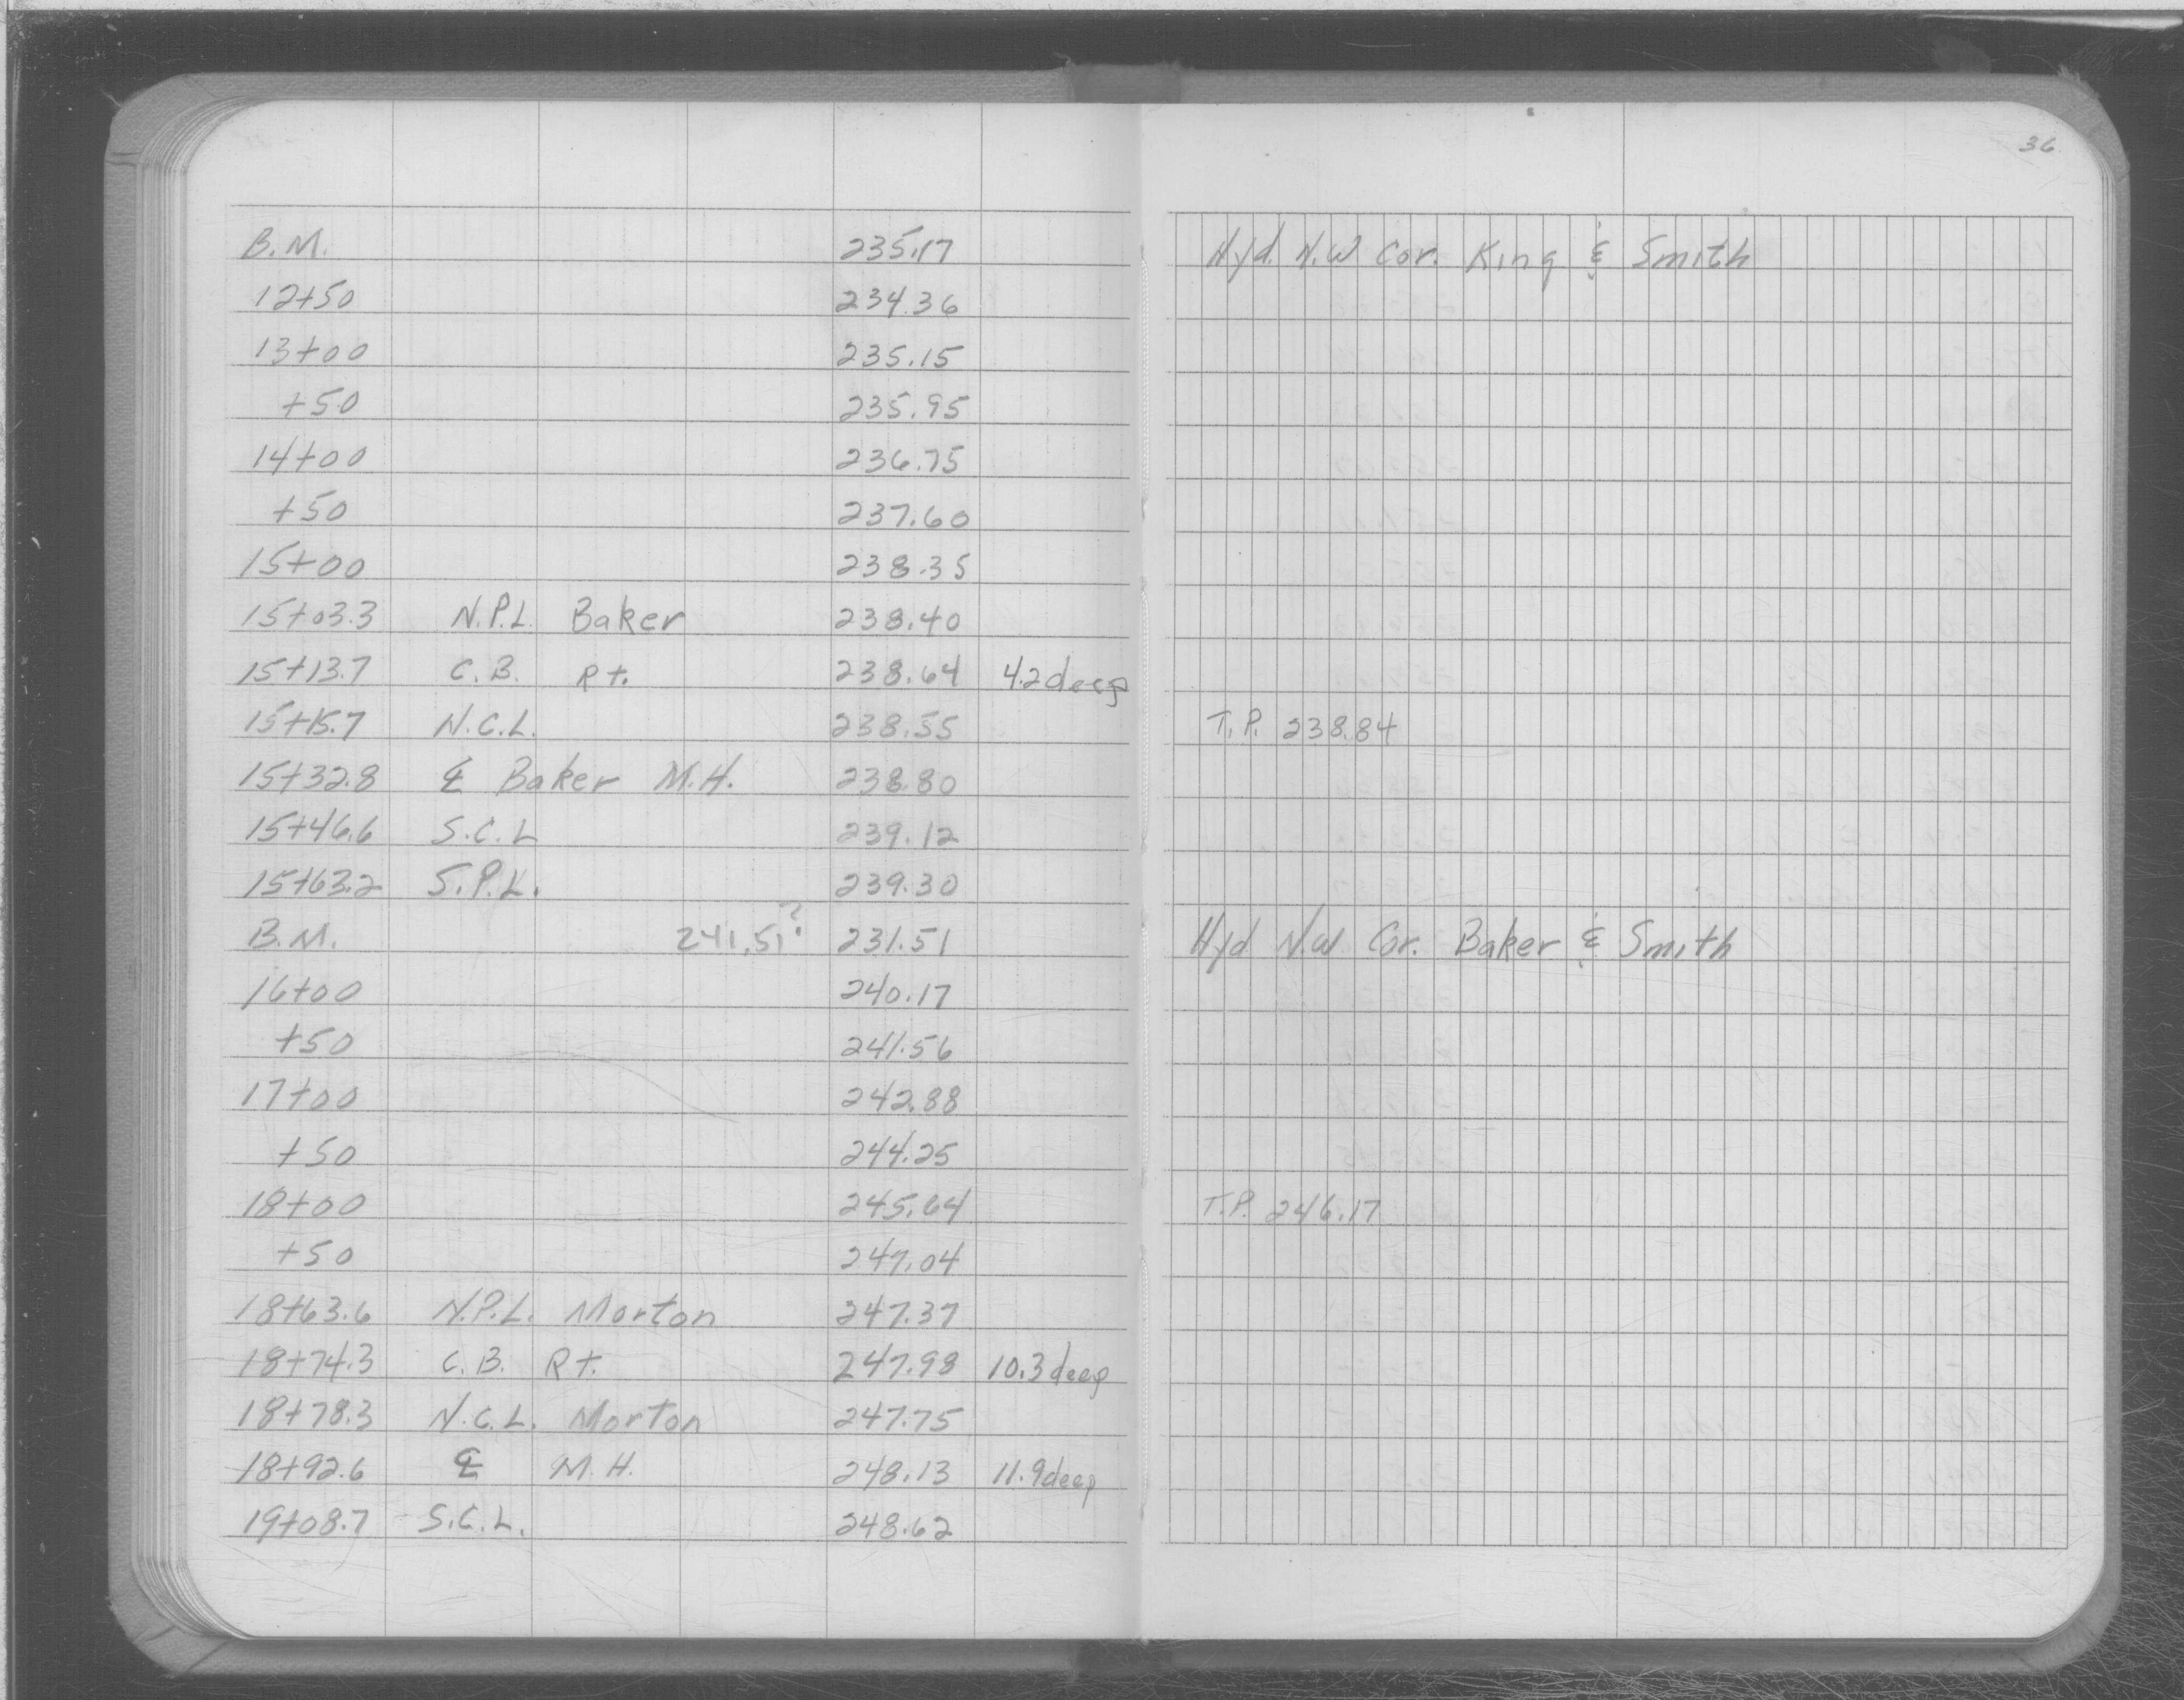 36
B.M. 235.17 Hyd. N.W Cor. King & Smith
12+50 234.36
13+00 235.15
+50 235.95
14+00 236.75
+50 237.60
15+00 238.35
15+03.3 N.P.L. Baker 238.40
15+13.7 C.B. Rt. 238.64 4.2 deep
15+15.7 N.C.L. 238.55 T.P. 238.84
15+32.8 ℄ Baker M.H. 238.80
15+46.6 S.C.L 239.12
15+63.2 S.P.L. 239.30
B.M. 241.51? 231.51 Hyd N.W. Cor. Baker & Smith
16+00 240.17
+50 241.56
17+00 242.88
+50 244.25
18+00 245.64 T.P. 246.17
+50 247.04
18+63.6 N.P.L. Morton 247.37
18+74.3 C.B. Rt. 247.98 10.3 deep
18+78.3 N.C.L. Morton 247.75
18+92.6 ℄ M.H. 248.13 11.9 deep
19+08.7 S.C.L. 248.62